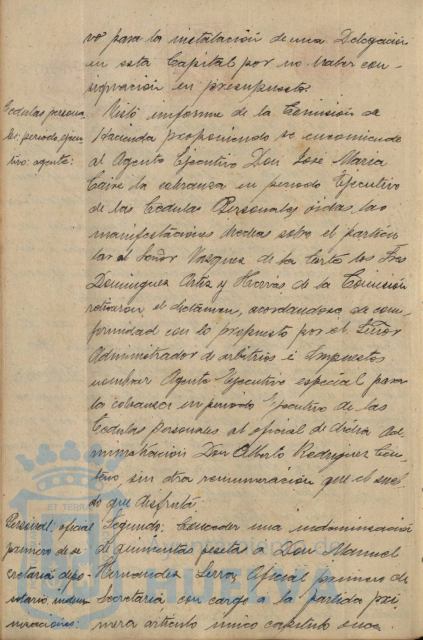 vo para la instalación de una Delegación
en esta Capital por no haber con-
signación en presupuesto.
Cedulas persona
les: periodo ejecu
tivo: agente:
Visto informe de la Comisión de
Hacienda proponiendo se encomiende
al Agente Ejecutivo Don José Maria
la cobranza en periodo Ejecutivo
de las Cedulas Personales oidas las
manifestaciones hechas sobre el particu
lar el Señor Vazquez de la Corte los Sres
Dominguez Ortiz y de la Comisión
retiraron el dictamen, acordandose de con-
formidad con lo propuesto por el Señor
Administrador de arbitrios é Impuestos
nombrar Agente Ejecutivo especial para
la cobranza en periodo Ejecutivo de las
Cedulas Personales al oficial de dicha Ad
ministración Don Alberto Rodriguez Cen
teno, sin otra remuneración que el suel
do que disfruta
Personal: oficial
primero de se
cretaria depo-
sitario indem
nizaciones:
Segundo: Conceder una indemnización
de quinientas pesetas a Don Manuel
Hernandez Oficial primero de
Secretaria con cargo a la partida pri
mera articulo unico capitulo once.
ET TERRAE